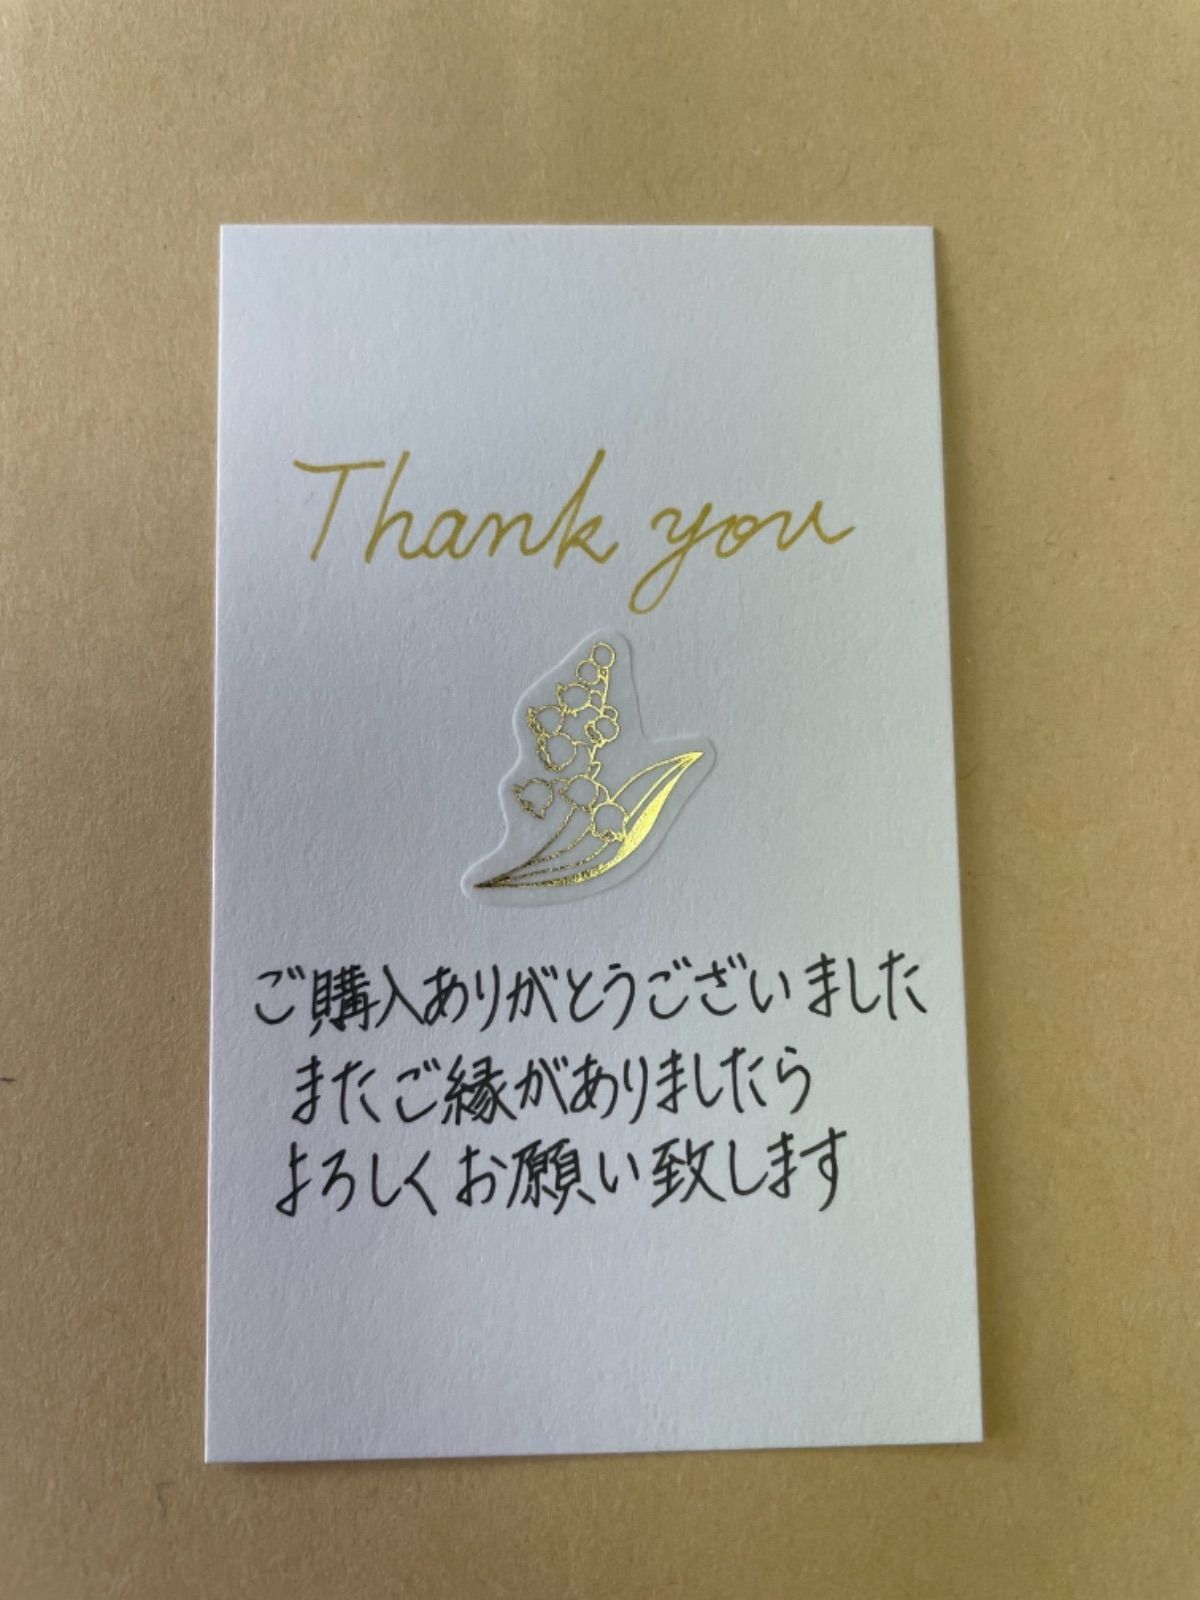 Thank you
ご購入ありがとうございました
またご縁がありましたら
よろしくお願い致します